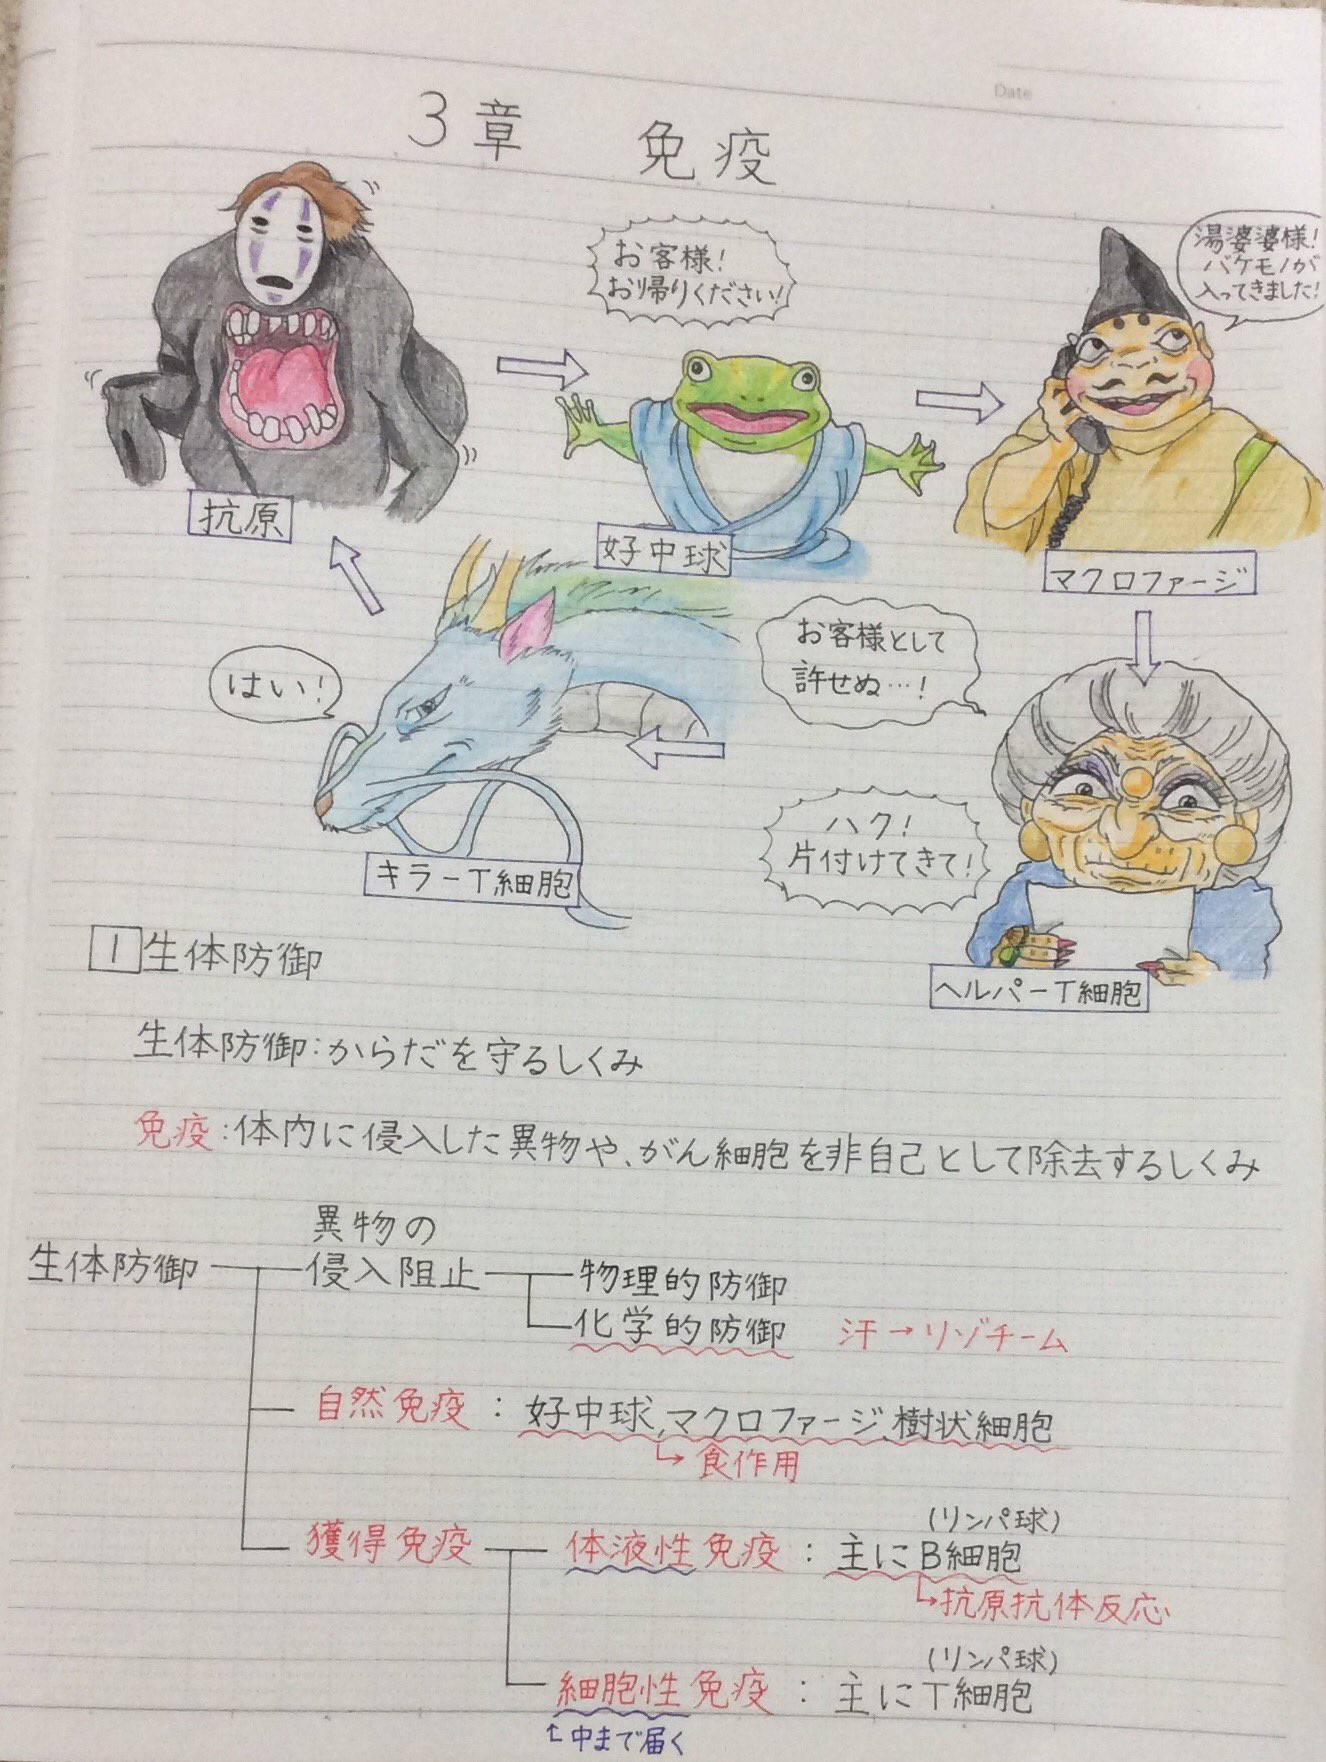 Date
3章 免疫
お客様!
お帰りください!
湯婆婆様!
バケモノが
入ってきました!
抗原
好中球
マクロファージ
はい!
お客様として
許せぬ…!
ハク!
片付けてきて!
キラーT細胞
ヘルパーT細胞
1 生体防御
生体防御:からだを守るしくみ
免疫:体内に侵入した異物や、がん細胞を非自己として除去するしくみ
異物の
生体防御 侵入阻止 物理的防御
化学的防御 汗→リゾチーム
自然免疫:好中球,マクロファージ,樹状細胞
↳食作用
(リンパ球)
獲得免疫 体液性免疫:主にB細胞
↳抗原抗体反応
(リンパ球)
細胞性免疫:主にT細胞
↑中まで届く